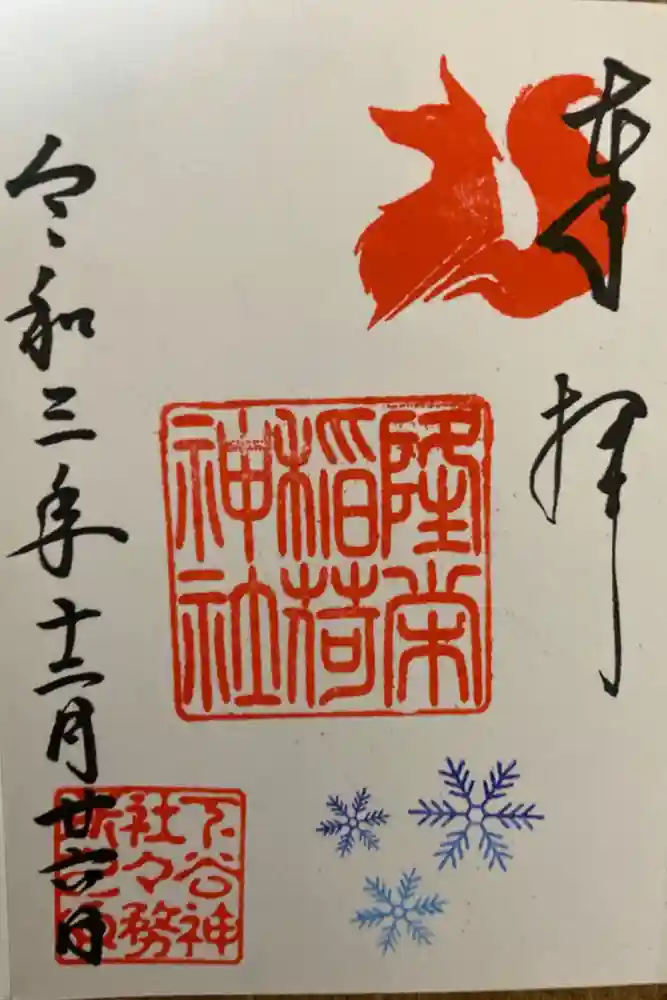 奉拝
隆栄
稲荷
神社
令和三年十二月廿六日
下谷神
社々務